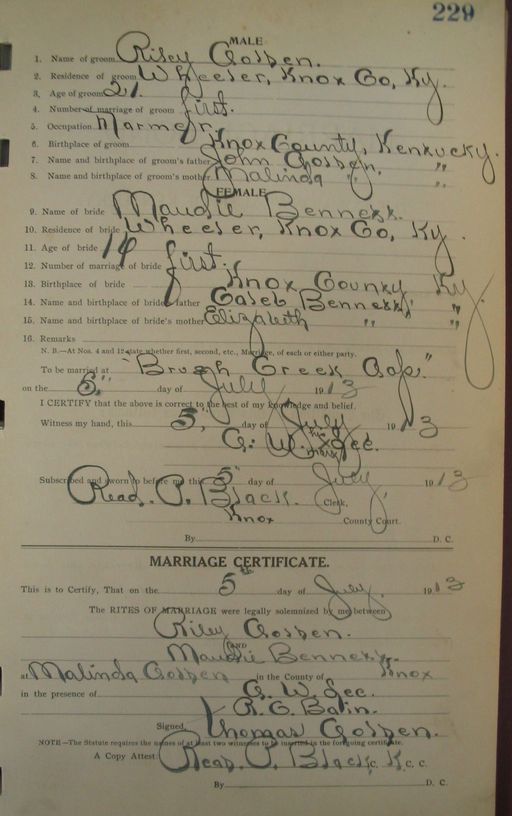 229
MALE
1. Name of groom Riley Gosden.
2. Residence of groom Wheeler, Knox Co, Ky.
3. Age of groom 21.
4. Number of marriage of groom first.
5. Occupation Farmer,
6. Birthplace of groom Knox County, Kentucky.
7. Name and birthplace of groom's father John Gosden, "
8. Name and birthplace of groom's mother Malinda " "
FEMALE
9. Name of bride Maudie Bennett.
10. Residence of bride Wheeler, Knox Co, Ky.
11. Age of bride 14
12. Number of marriage of bride first.
13. Birthplace of bride Knox County Ky.
14. Name and birthplace of bride's father Caleb Bennett, "
15. Name and birthplace of bride's mother Elizabeth " "
16. Remarks
N. B.—At Nos. 4 and 12 state whether first, second, etc., Marriage, of each or either party.
To be married at "Brush Creek Gap."
on the 5, day of July 1913
I CERTIFY that the above is correct to the best of my knowledge and belief.
Witness my hand, this 5, day of July 1913
G. W. his mark Lee.
Subscribed and sworn to before me this 5 day of July 1913
Read. P. Black. Clerk,
Knox County Court.
By D. C.
MARRIAGE CERTIFICATE.
This is to Certify, That on the 5th day of July, 1913
The RITES OF MARRIAGE were legally solemnized by me between
Riley Gosden.
AND Maudie Bennett.
at Malinda Gosden in the County of Knox
in the presence of G. W. Lee.
R. G. Balin.
Signed, Thomas Gosden.
NOTE—The Statute requires the names of at least two witnesses to be inserted in the foregoing certificate.
A Copy Attest Read. P. Black C. K. C. C.
By D. C.